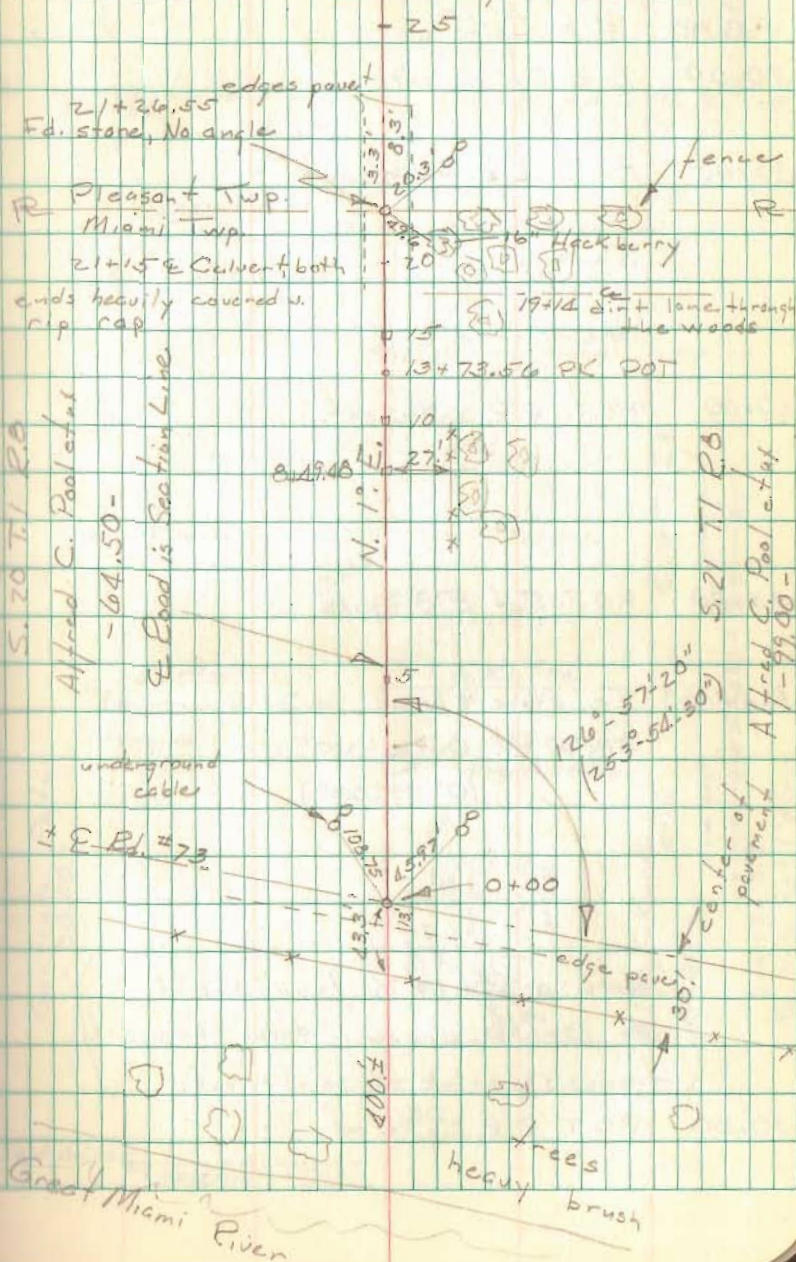 - 25
edges pavet
21+26.55
Fd. stone, No angle
3.3'
8.3'
20.3'
fence
Pleasant Twp.
Miami Twp.
49.6
16" Hackberry
20
21+15 ℄ Culvert, both
ends heavily covered w.
rip rap
19+14 ℄ dirt lane through
the woods
15
13+73.56 PK POT
10
8+49.48
27'
N. 1° E.
S. 20 T.1 R.8
Alfred C. Pool etux
-64.50-
℄ Road is Section Line
S. 21 T.1 R.8
Alfred C. Pool etux
-99.00-
5
126°-57'-20"
(253°-54'-30")
underground
cable
108.75
45.97'
1± ℄ Rd. #73
0+00
center of
pavement
43.3'
edge pave
30'
400'±
trees
heavy brush
Great Miami River